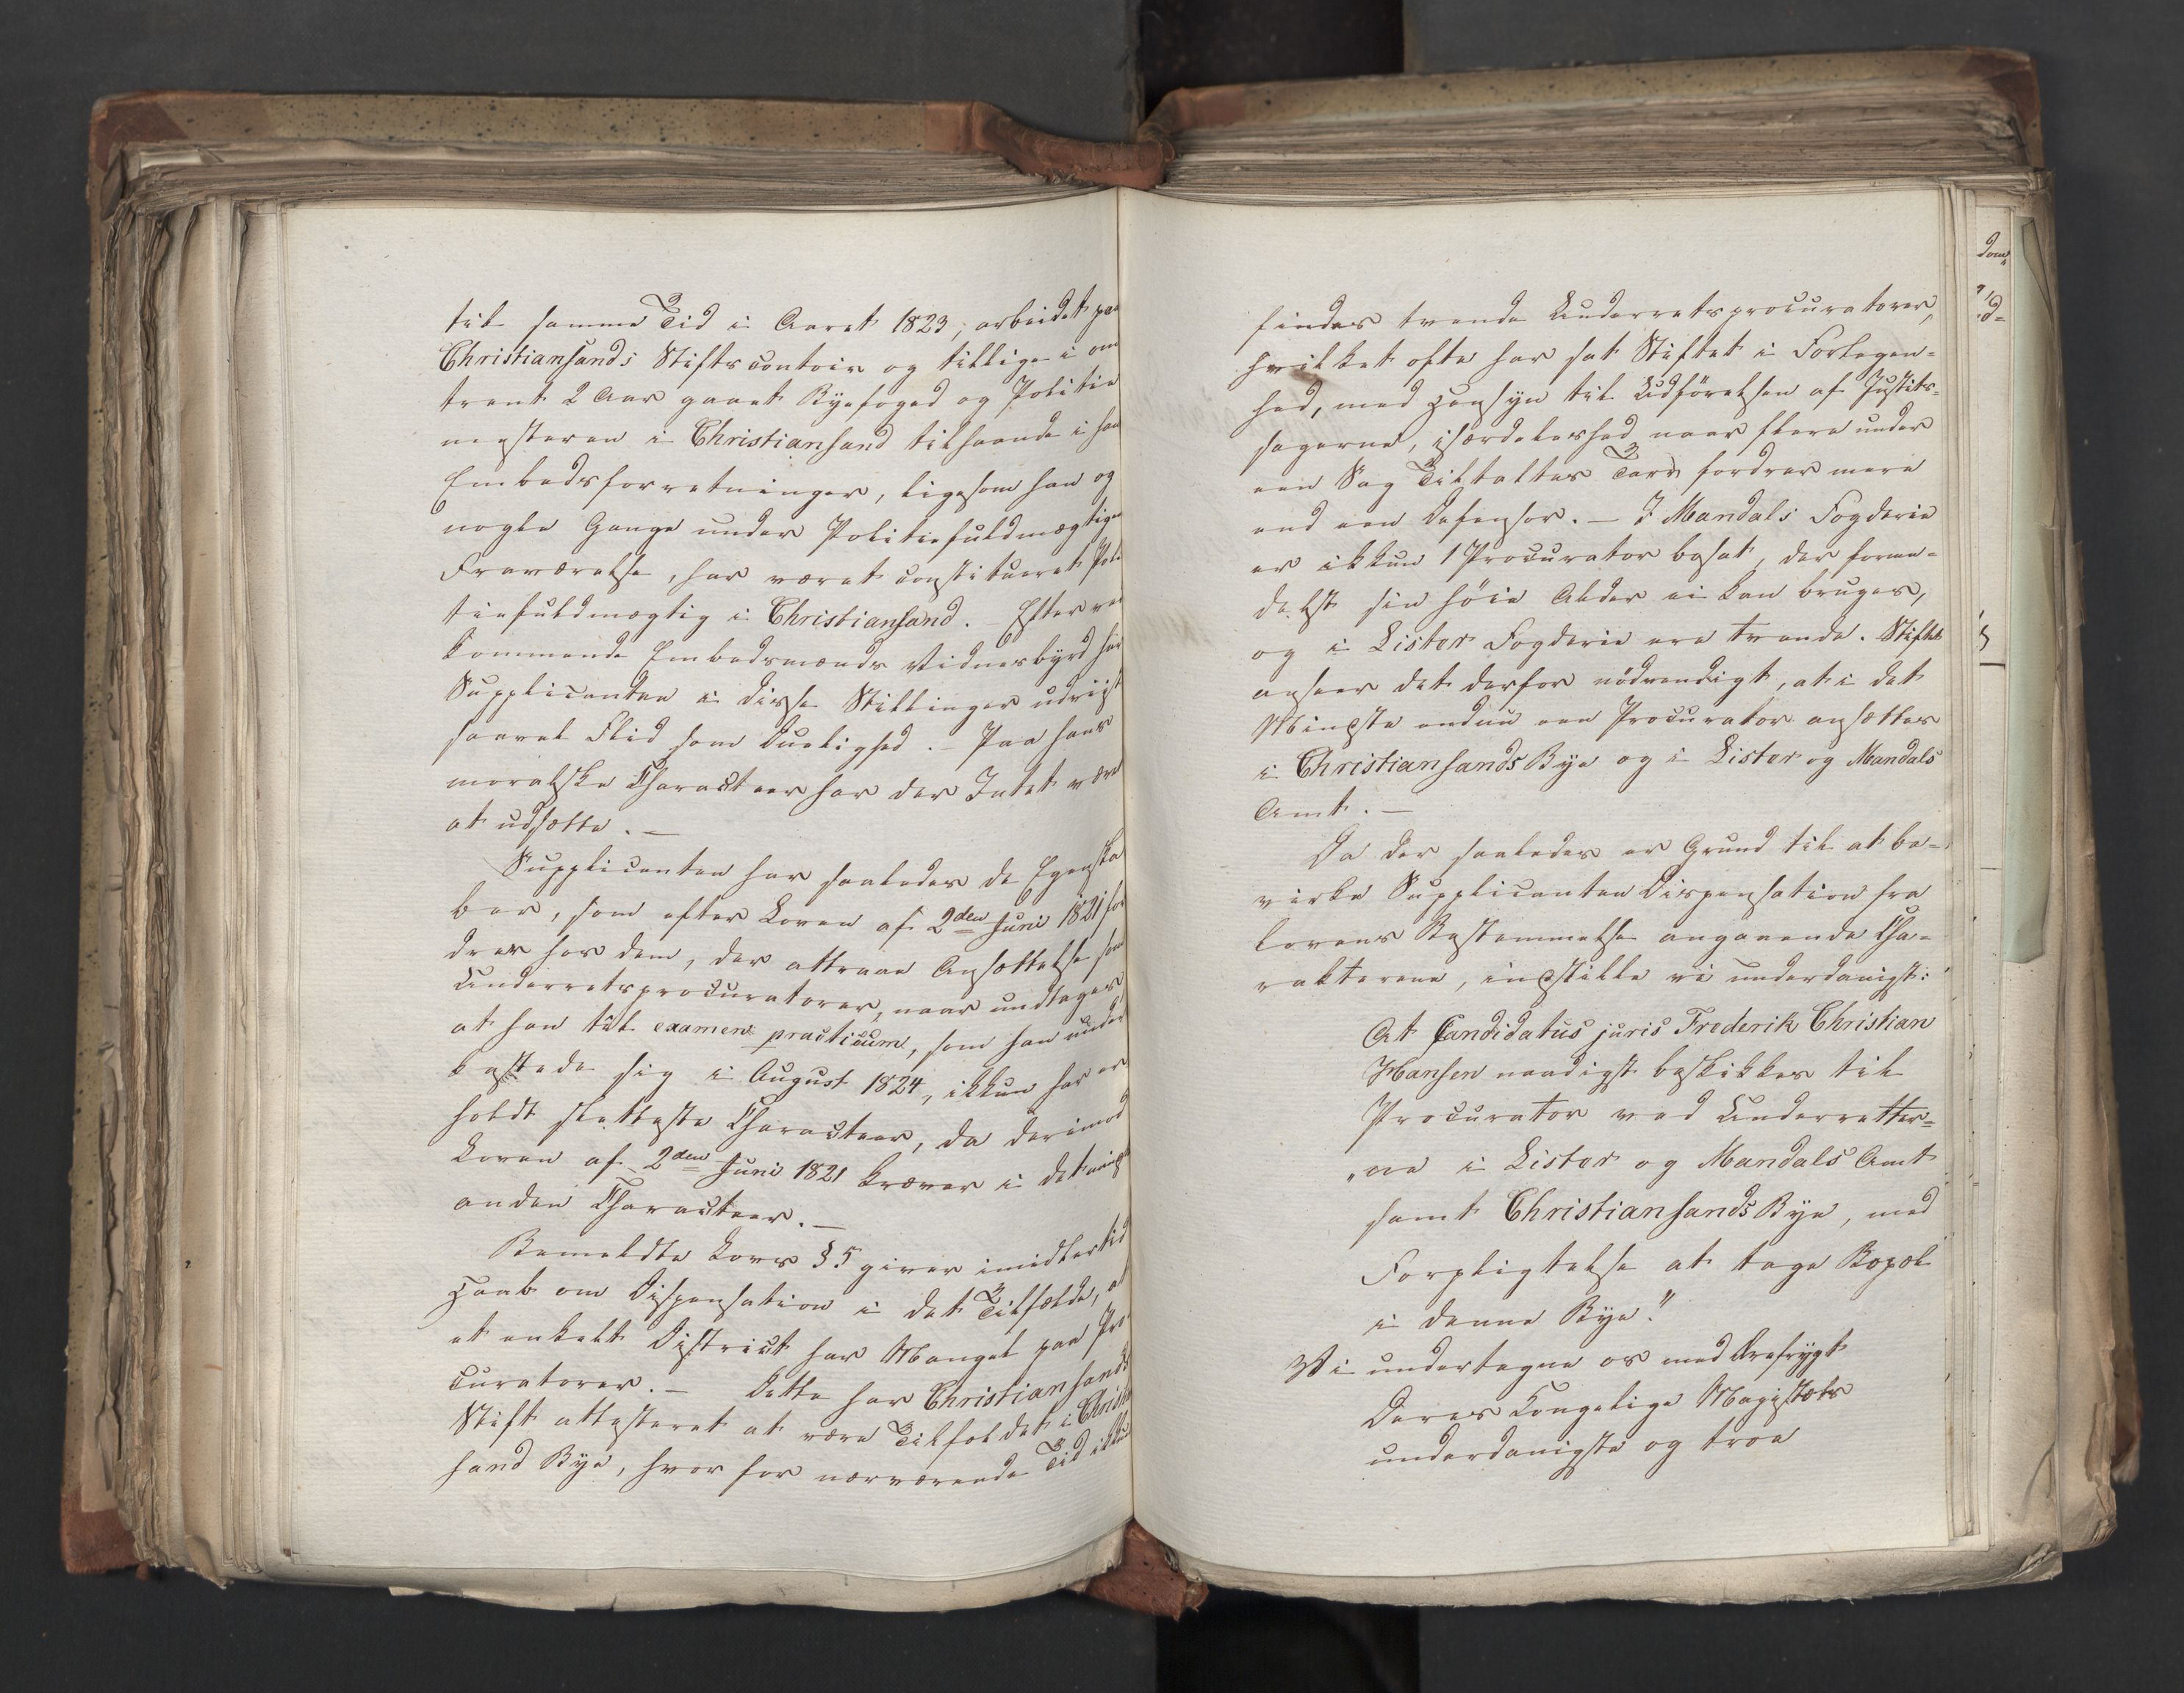 til samme Tid i Aaret 1823, arbeidet paa
Christiansands Stiftscontoir og tillige i om
trent 2 Aar gaaet Byefoged og Politie
mesteren i Christiansand tilhaande i hans
Embedsforretninger, ligesom han og
nogle Gange under Politiefuldmægtigens
Fraværelse, har været constitueret Poli
tiefuldmægtig i Christiansand. - Efter ved
kommende Embedsmænds Vidnesbyrd har
Supplicanten i disse Stillinger udviist
saavel Flid som Duelighed. - Paa hans
moralske Characteer har der Intet været
at udsætte. -
Supplicanten har saaledes de Egenska
ber, som efter Loven af 2den Juni 1821 for
dres hos dem, der attraae Ansættelse som
Underretsprocuratorer, naar undtages
at han til examen practicum, som han under
kastede sig i August 1824, ikkun har er
holdt sletteste Characteer, da derimod
Loven af 2den Juni 1821 kræver i det mindste
anden Characteer. -
Bemeldte Lovs § 5 giver imidlertid
Haab om Dispensation i det Tilfælde, at
et enkelt District har Mangel paa Pro
curatorer. - Dette har Christiansands
Stift attesteret at være Tilfældet i Christian
sand Bye, hvor for nærværende Tid ikkun
findes tvende Underretsprocuratorer,
hvilket ofte har sat Stiftet i Forlegen-
hed, med Hensyn til Udførelsen af Justits-
sagerne, isærdeleshed naar flere under
een Sag Tiltaltes Tarv fordrer mere
end een Defensor. - I Mandals Fogderie
er ikkun 1 Procurator bosat, der forme-
delst sin høie Alder ei kan bruges,
og i Lister Fogderie ere tvende. Stiftet
anseer det derfor nödvendigt, at i det
Mindste endnu een Procurator ansættes
i Christiansands Bye og i Lister og Mandals
Amt. -
Da der saaledes er Grund til at be-
virke Supplicanten Dispensation fra
Lovens Bestemmelse angaaende Cha-
rakterene, indstille vi underdanigst:
At Candidatus juris Frederik Christian
Hansen naadigst beskikkes til
Procurator ved Underretter-
ne i Lister og Mandals Amt
samt Christiansands Bye, med
Forpligtelse at tage Bopæl
i denne Bye."
Vi undertegne os med Ærefrygt
Deres Kongelige Majestæts
underdanigste og troe